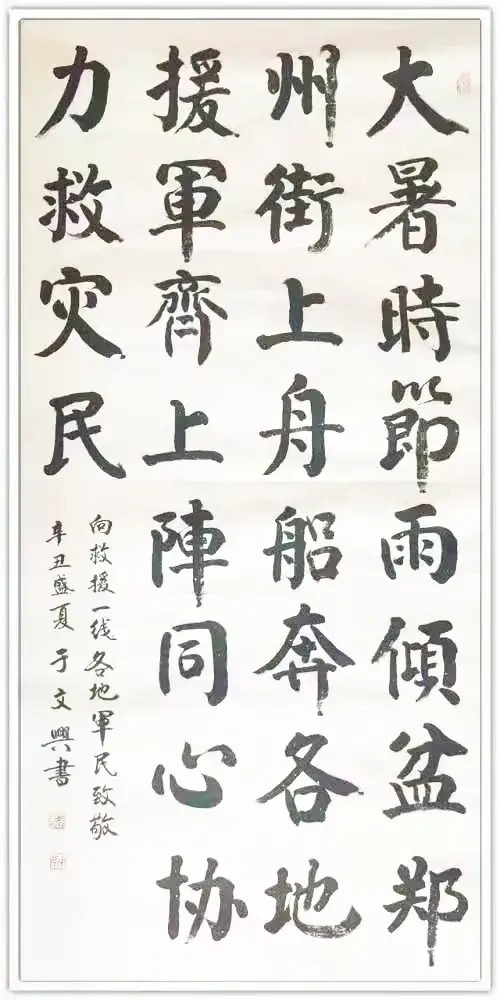 大暑時節雨傾盆郑
州街上舟船奔各地
援軍齊上陣同心协
力救灾民
向救援一线各地軍民致敬
辛丑盛夏于文興書